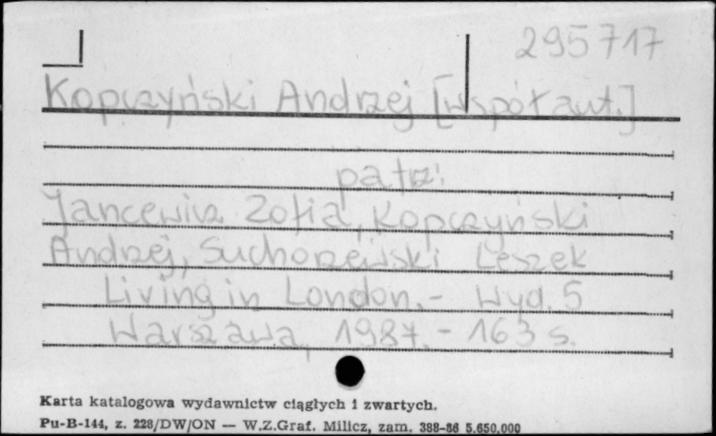 295717
Kopczyński Andrzej [współaut.]
patrz:
Jancewicz Zofia, Kopczyński
Andrzej, Suchorzewski Leszek
Living in London.- Wyd. 5
Warszawa, 1987.- 163 s.
Karta katalogowa wydawnictw ciągłych i zwartych.
Pu-B-144, z. 228/DW/ON — W.Z.Graf. Milicz, zam. 388-86 5.650.000